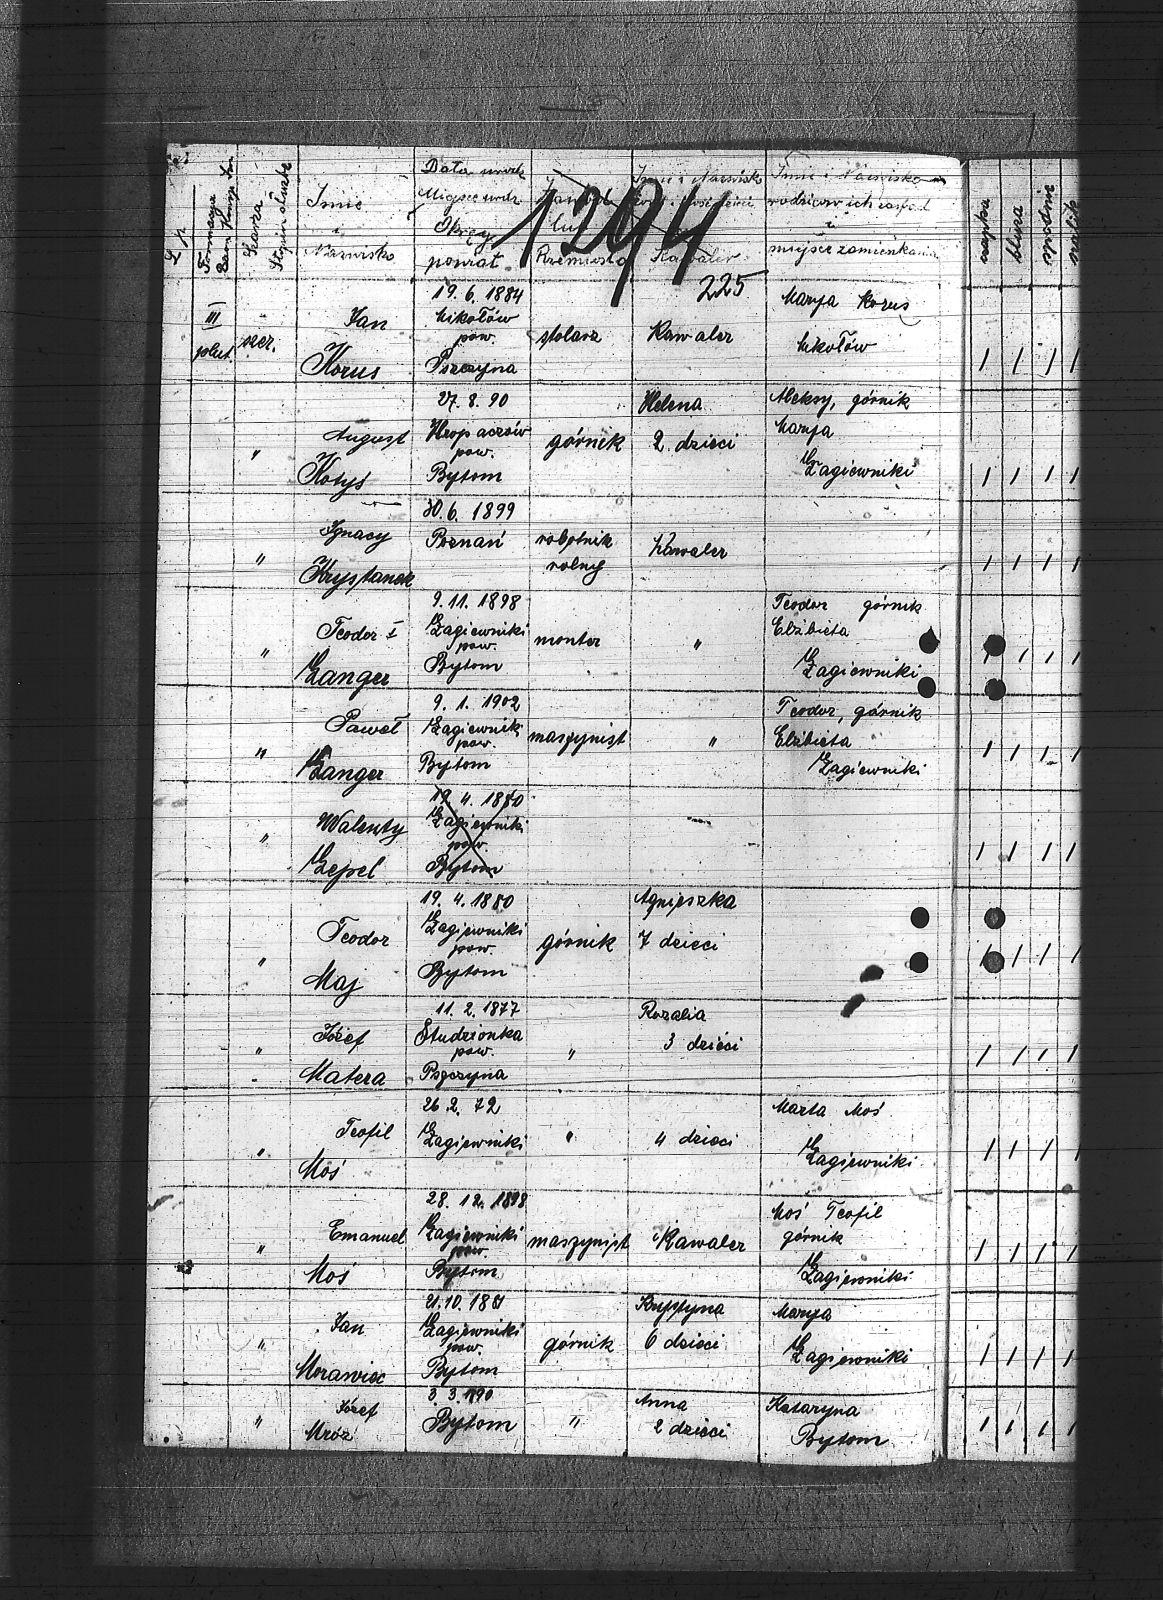 L p
Formacja
Szarża
Stopień służb
Imię
i
Nazwisko
Data urodz
Miejsce urodz
Okręg
powrat
Zawód
lub
Rzemiosło
Imię i Nazwisko
Kawaler
Imię i Nazwisko
rodziców ich zawód
i
miejsce zamieszkania
czapka
bluza
spodnie
1294
225
III
plut.
szer.
Jan
Korus
19. 6. 1884
Mikołów
pow.
Pszczyna
stolarz
Kawaler
Marya Korus
Mikołów
/ / / /
"
August
Kotys
27. 8. 90
Hropaczów
pow.
Bytom
górnik
Helena
2 dzieci
Aleksy, górnik
Marya
Łagiewniki
/ / / /
"
Ignacy
Krystanek
30. 6. 1899
Poznań
robotnik
rolny
Kawaler
/ / / /
"
Teodor I
Langer
9. 11. 1898
Łagiewniki
pow.
Bytom
monter
"
Teodor górnik
Elżbieta
Łagiewniki
/ / / /
"
Paweł
Langer
9. 1. 1902
Łagiewnik
pow.
Bytom
maszynist
"
Teodor, górnik
Elżbieta
Łagiewniki
/ / / /
"
Walenty
Lepel
19. 4. 1880
Łagiewniki
pow.
Bytom
/ / / /
"
Teodor
Maj
19. 4. 1880
Łagiewniki
pow.
Bytom
górnik
Agnieszka
7 dzieci
/ / / /
"
Józef
Matera
11. 2. 1877
Studzionka
pow.
Pszczyna
"
Rozalia
3 dzieci
/ / / /
"
Teofil
Moś
26. 2. 72
Łagiewniki
"
4 dzieci
Marta Moś
Łagiewniki
/ / / /
"
Emanuel
Moś
28. 12. 1898
Łagiewniki
pow.
Bytom
maszynist
Kawaler
Moś Teofil
górnik
Łagiewniki
/ / / /
"
Jan
Morawiec
21. 10. 1881
Łagiewniki
pow.
Bytom
górnik
Krystyna
6 dzieci
Marya
Łagiewniki
/ / / /
"
Józef
Mróz
3. 3. 1890
Bytom
"
Anna
2 dzieci
Katarzyna
Bytom
/ / / /